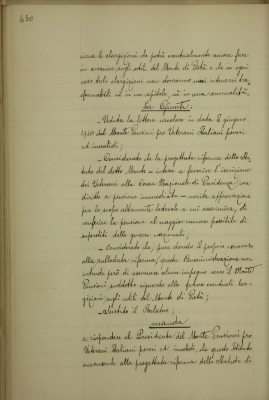 630
ciera le elargizioni che potrà eventualmente ancora fare
in avvenire sugli utili del Monte di Pietà e che in ogni
caso dette elargizioni non dovranno mai intendersi tra-
sformabili nè in un capitale, nè in una annualità,
La Giunta
- Veduta la lettera circolare in data 6 giugno
1910 del Monte Pensioni fra Veterani Italiani poveri
ed invalidi;
- Considerato che la progettata riforma dello Sta-
tuto del detto Monte - intesa a favorire l'iscrizione
dei Veterani alla Cassa Nazionale di Previdenza con
diritto a pensione immediata - merita approvazione
per lo scopo altamente benevolo a cui s'avvicina, di
conferire la pensione al maggior numero possibile di
superstiti delle guerre nazionali;
- Considerato che, pure dando il proprio consenso
alla sullodata riforma, questa Amministrazione non
intende però di assumere alcun impegno verso il Monte
Pensioni suddetto riguardo alle future eventuali largi-
gizioni sugli utili del Monte di Pietà;
- Sentito il Relatore;
manda
a rispondere al Presidente del Monte Pensioni fra
Veterani Italiani poveri ed invalidi, che questo Istituto
acconsente alla progettata riforma dello Statuto, di